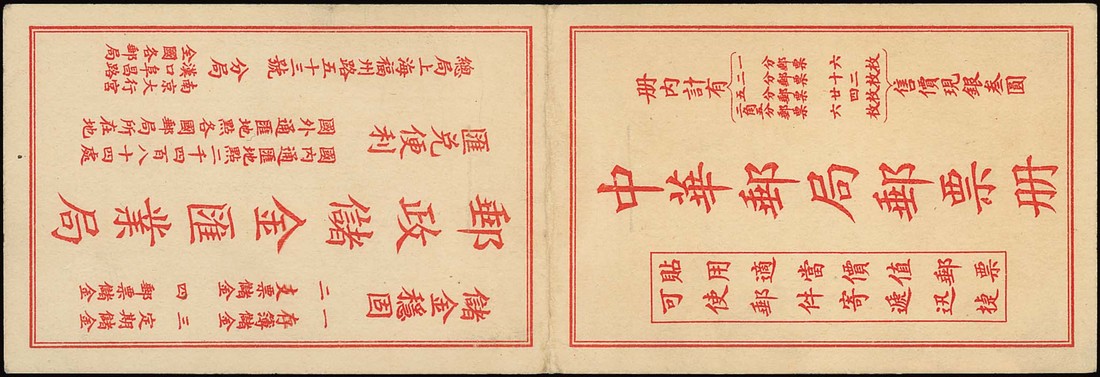 中華郵局郵票册
册內計有
一分郵票六枚
二分郵票十二枚
五分郵票廿四枚
二角五分郵票六枚
售價現銀叁圓
貼用適當價值郵票
可使郵件寄遞迅捷
郵政儲金匯業局
總局上海福州路五十三號
分局
南京大行宮
漢口阜昌路
全國各郵局
匯兌便利
國內通匯地點二千四百八十四處
國外通匯地點各國郵局所在地
儲金穩固
一 存簿儲金
二 支票儲金
三 定期儲金
四 郵票儲金